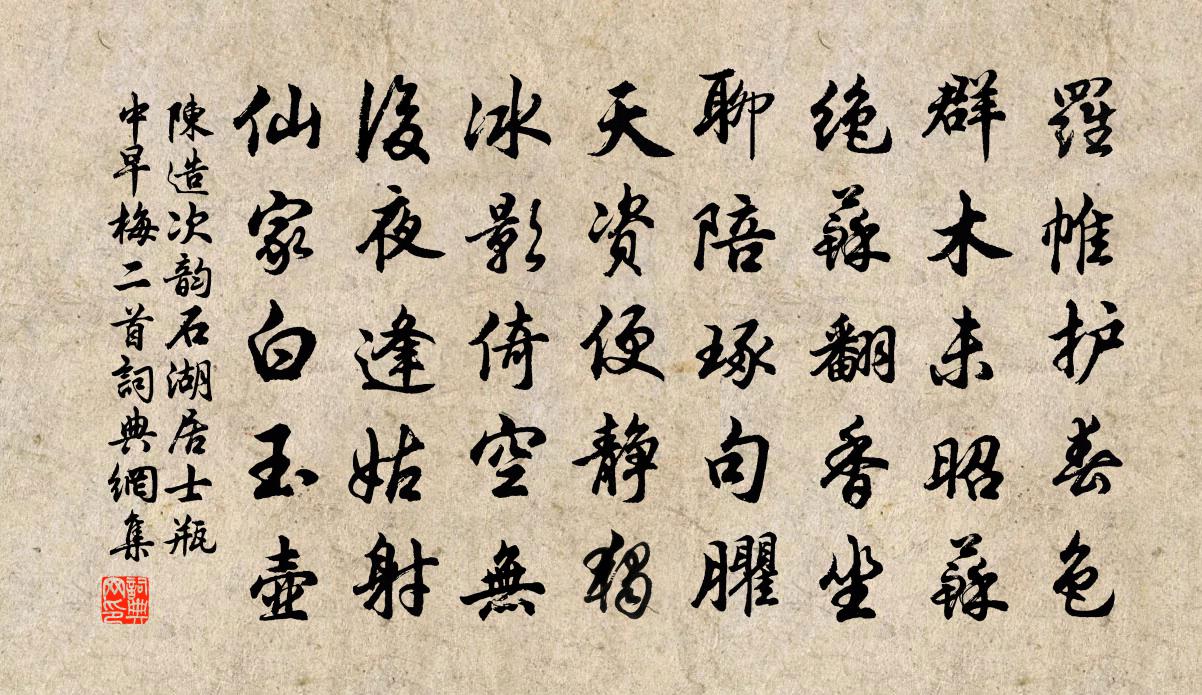 羅帷护春色
群木未昭蘇
绝蘇翻香坐
聊陪琢句臞
天资便静獨
冰影倚空無
後夜逢姑射
仙家白玉壺
陳造次韵石湖居士瓶
中早梅二首詞典網集
詞典
网印